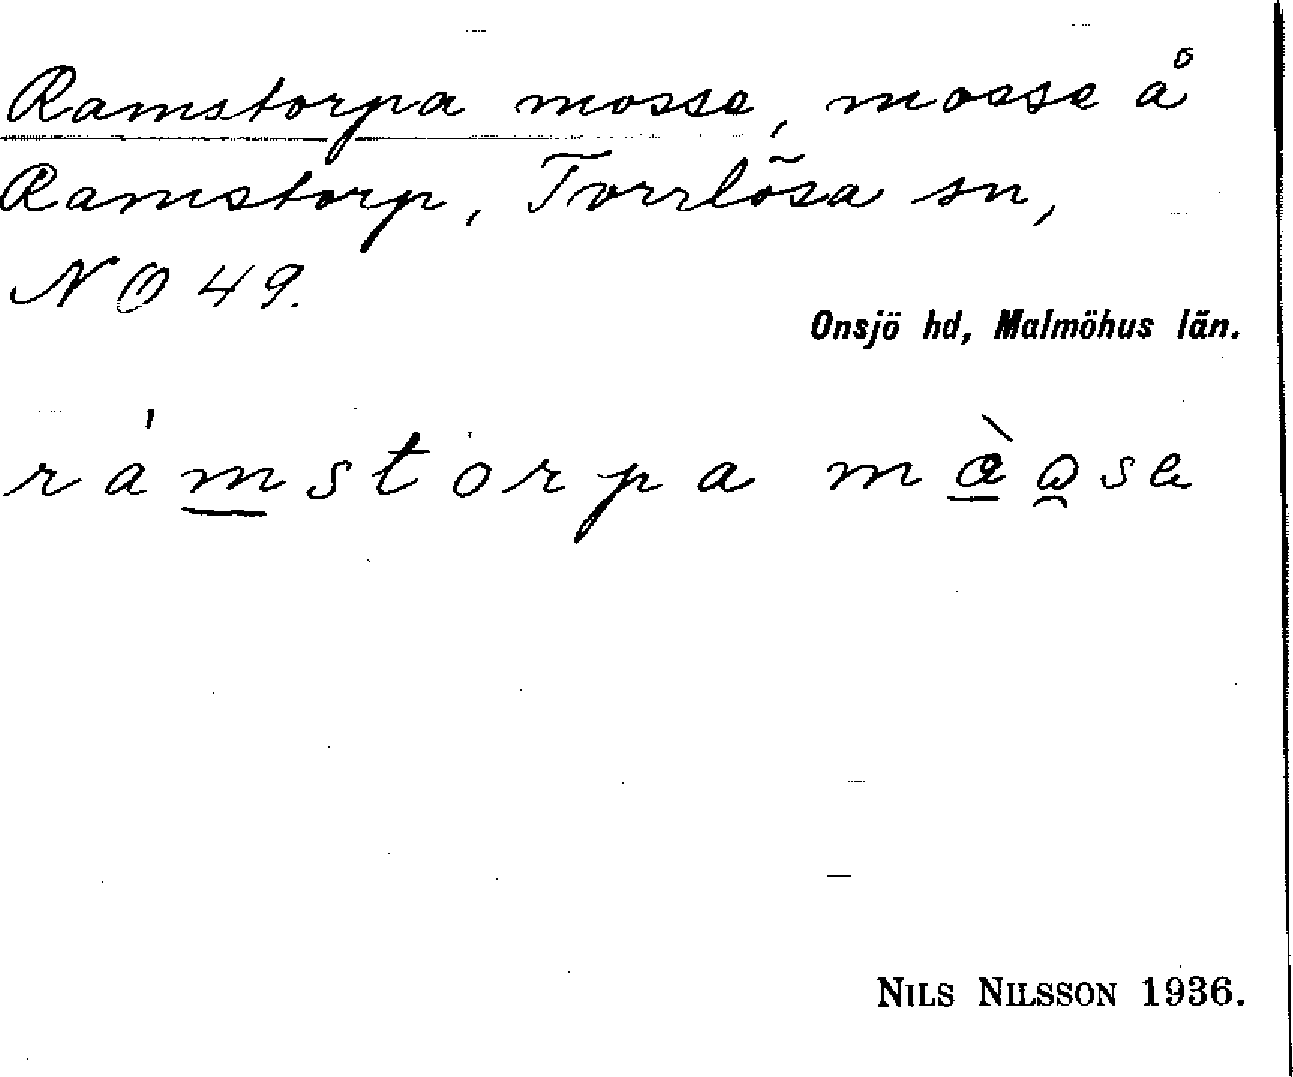 Ramstorpa mosse, mosse å
Ramstorp, Torrlösa sn,
NO 49.
Onsjö hd, Malmöhus län.
rámstorpa màosa
NILS NILSSON 1936.